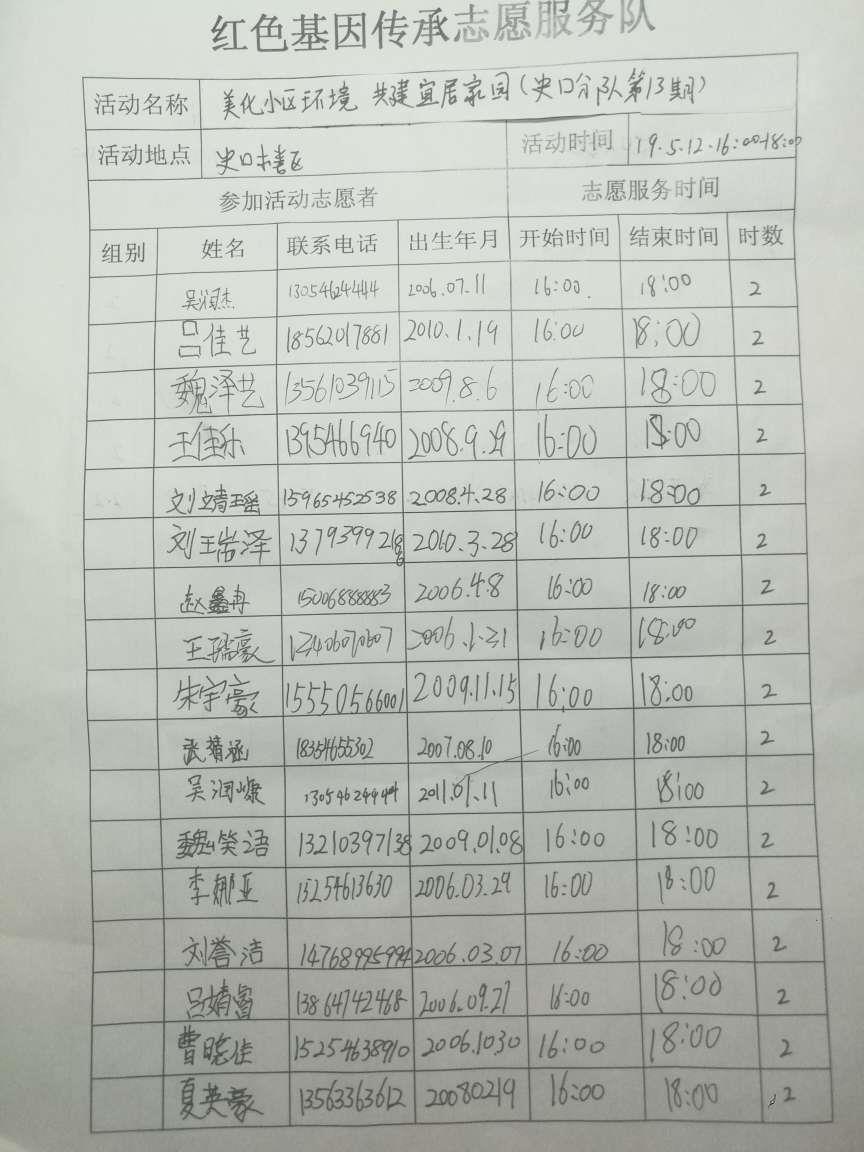 红色基因传承志愿服务队
活动名称 美化小区环境 共建宜居家园(史口分队第13期)
活动地点 史口 区 活动时间 19.5.12.16:00-18:00
参加活动志愿者 志愿服务时间
组别 姓名 联系电话 出生年月 开始时间 结束时间 时数
吴润杰 13054624444 2006.07.11 16:00 18:00 2
吕佳艺 18562017881 2010.1.19 16:00 18:00 2
魏泽艺 13561039115 2009.8.6 16:00 18:00 2
王佳乐 1395466940 2008.9.29 16:00 18:00 2
刘靖瑶 15965452538 2008.4.28 16:00 18:00 2
刘瑞泽 13793992188 2010.3.28 16:00 18:00 2
赵鑫冉 15006888883 2006.4.8 16:00 18:00 2
王瑞豪 2006.1.21 16:00 18:00 2
朱宇豪 15550566001 2009.11.15 16:00 18:00 2
张菁涵 18354655302 2007.08.10 16:00 18:00 2
吴润 13054624444 2011.01.11 16:00 18:00 2
魏笑语 13210397138 2009.01.08 16:00 18:00 2
李娜亚 15254613630 2006.03.29 16:00 18:00 2
刘誉洁 14768995994 2006.03.07 16:00 18:00 2
吕婧 13864742468 2006.09.27 16:00 18:00 2
曹晓佳 15254638910 2006.1030 16:00 18:00 2
夏英豪 13563363612 20080219 16:00 18:00 2